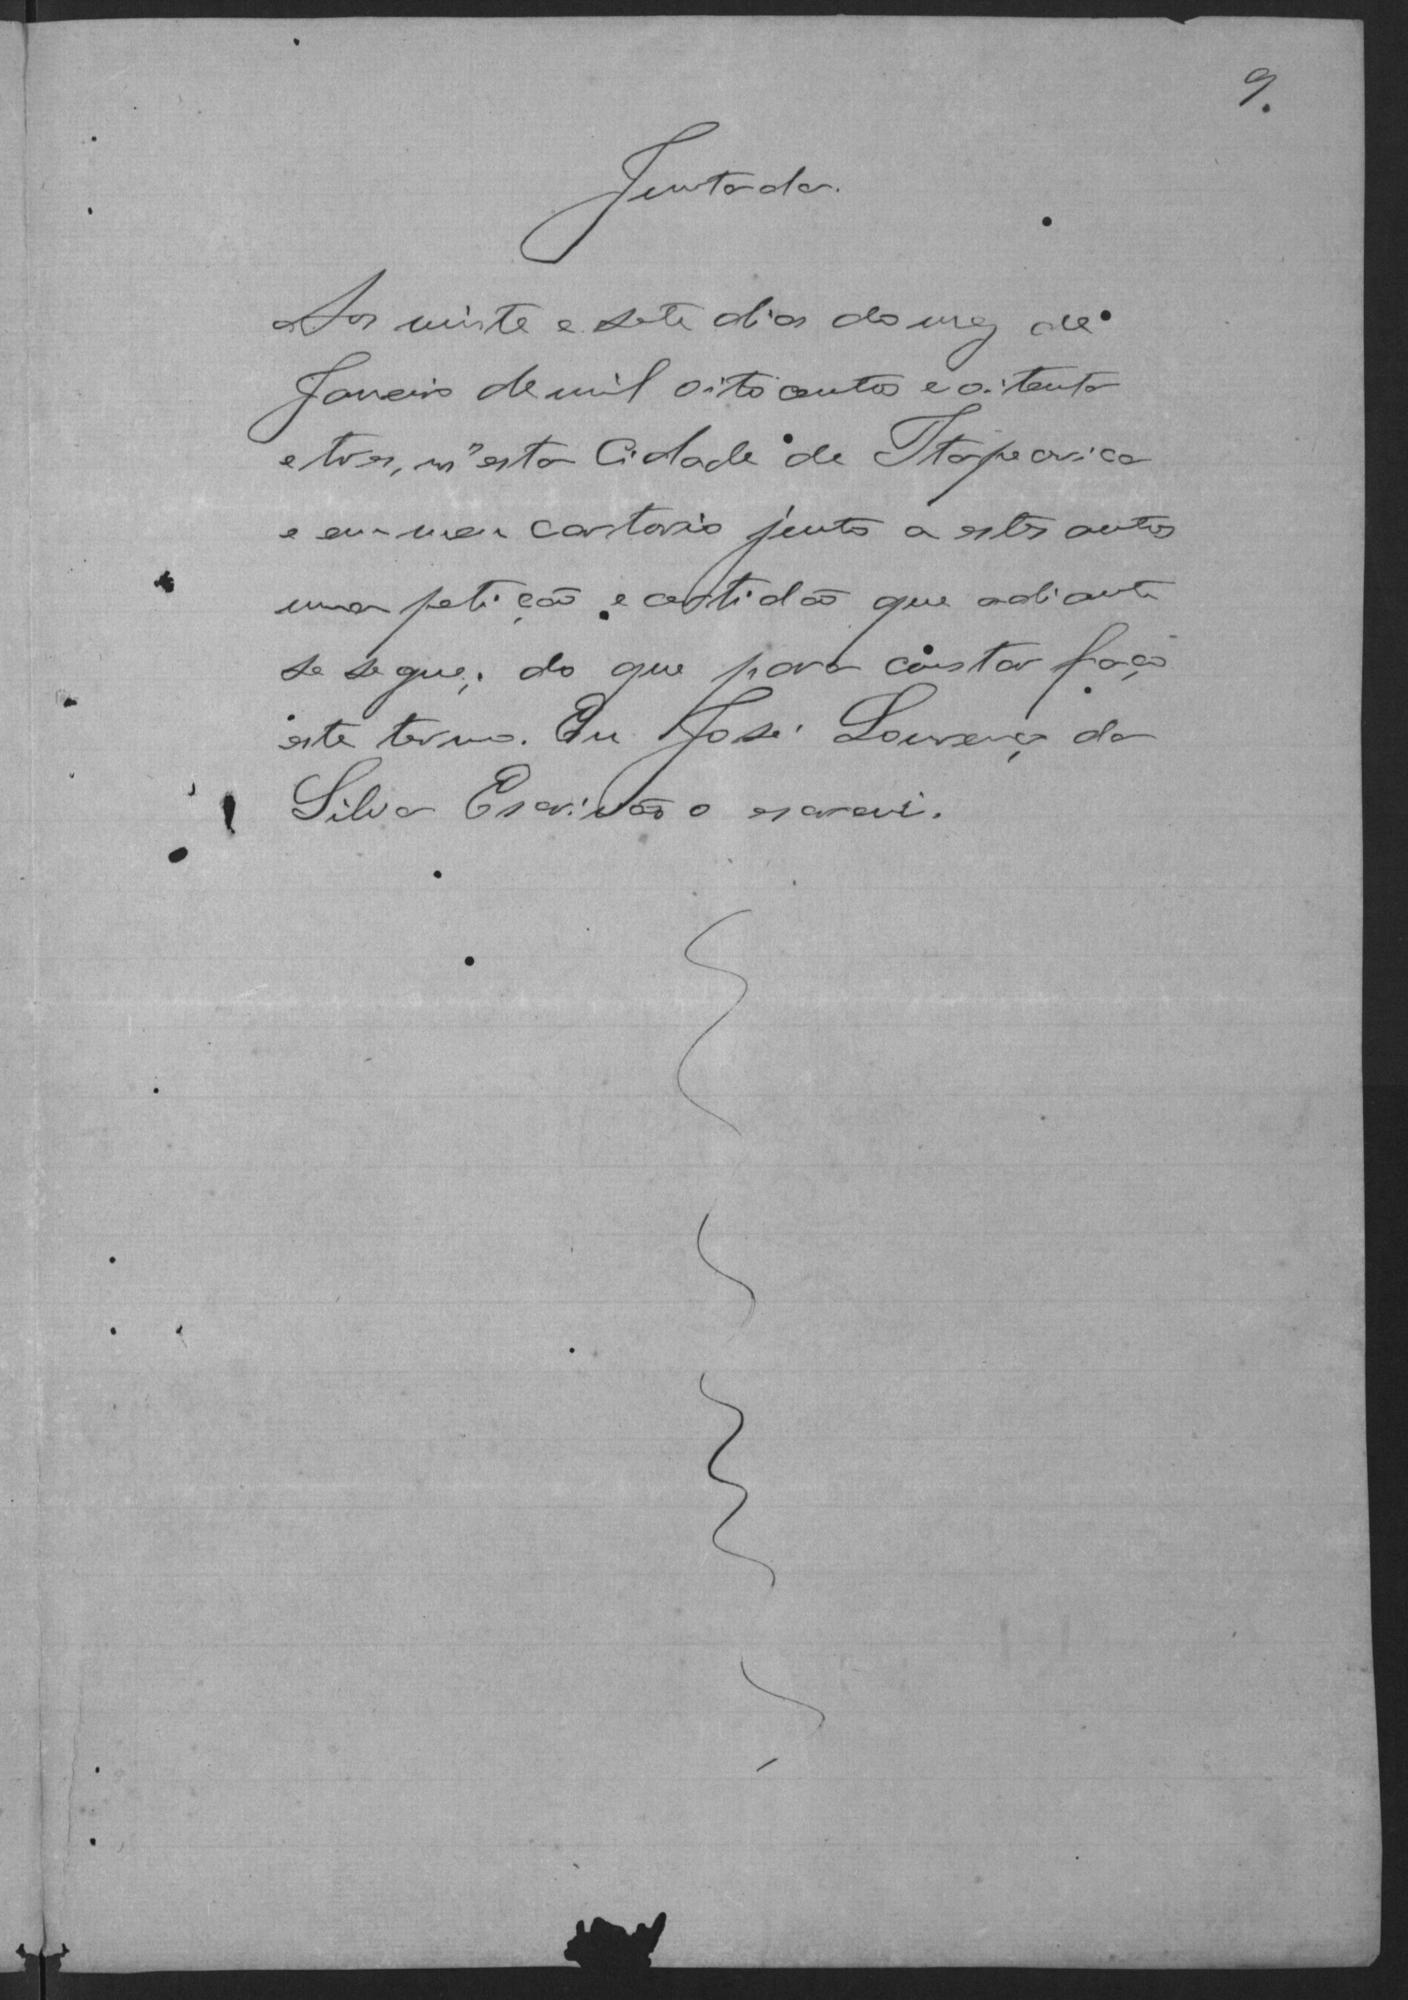 9.
Juntada.
Aos vinte e sete dias do mez de
Janeiro de mil oito centos e oitenta
e tres, n'esta Cidade de Itapecerica
e em meu cartorio junto a estes autos
uma petição e certidão que adiante
se segue; do que para constar faço
este termo. Eu José Lourenço da
Silva Escrivão o escrevi.